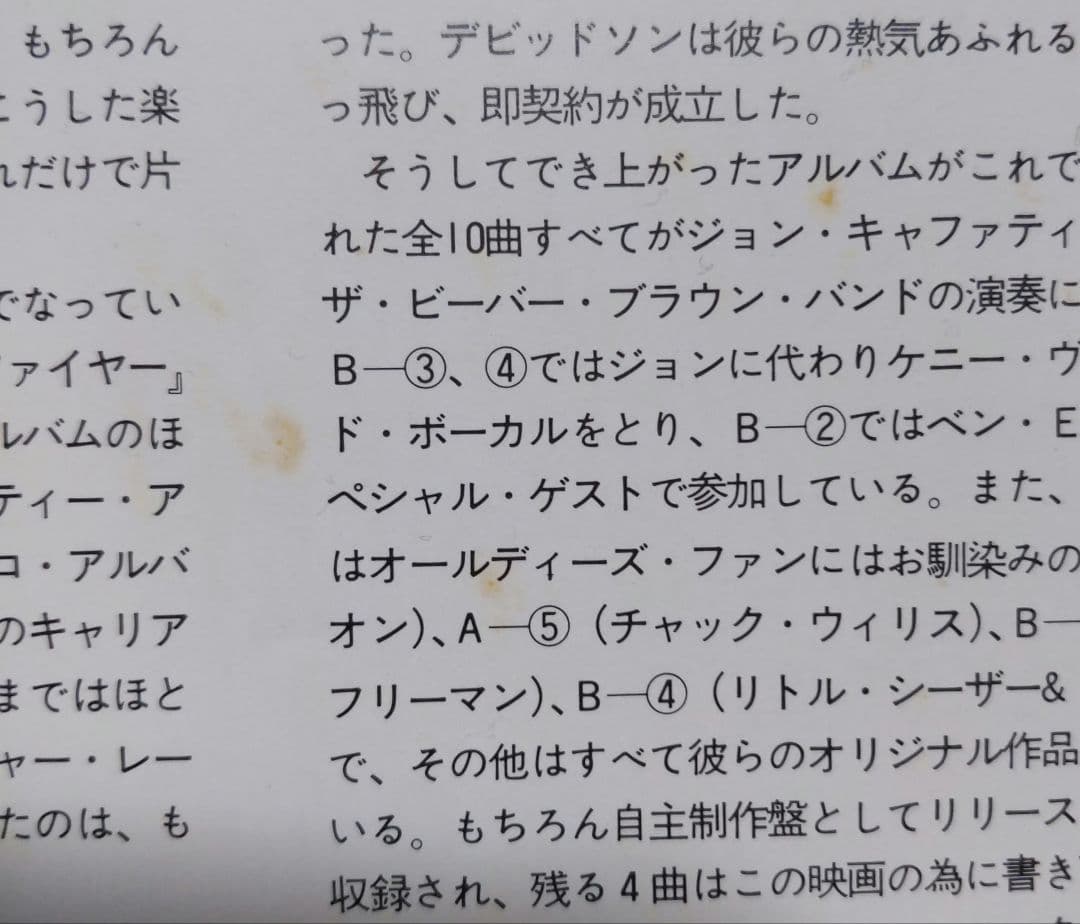 もちろん
こうした楽
れだけで片
でなってい
ァイヤー』
ルバムのほ
ティー・ア
コ・アルバ
のキャリア
まではほと
ャー・レー
たのは、も
った。デビッドソンは彼らの熱気あふれる
っ飛び、即契約が成立した。
そうしてでき上がったアルバムがこれで
れた全10曲すべてがジョン・キャファティ
ザ・ビーバー・ブラウン・バンドの演奏に
B—③、④ではジョンに代わりケニー・ヴ
ド・ボーカルをとり、B—②ではベン・E
ペシャル・ゲストで参加している。また、
はオールディーズ・ファンにはお馴染みの
オン)、A—⑤(チャック・ウィリス)、B—
フリーマン)、B—④(リトル・シーザー&
で、その他はすべて彼らのオリジナル作品
いる。もちろん自主制作盤としてリリース
収録され、残る4曲はこの映画の為に書き